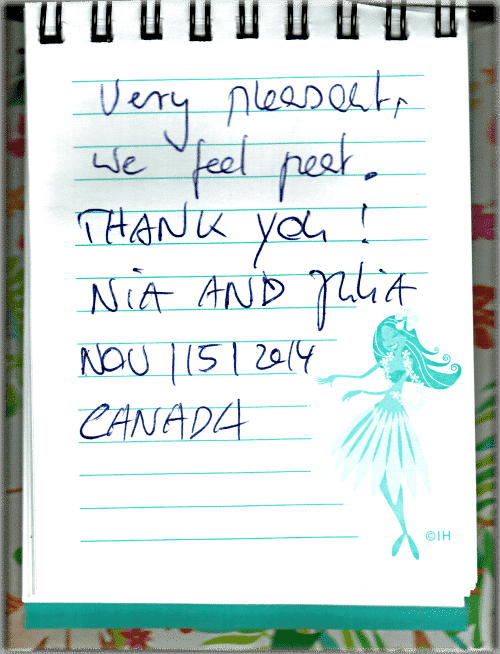 Very pleasant,
we feel great.
THANK you!
NIA AND JuliA
NOV | 15 | 2014
CANADA
©IH